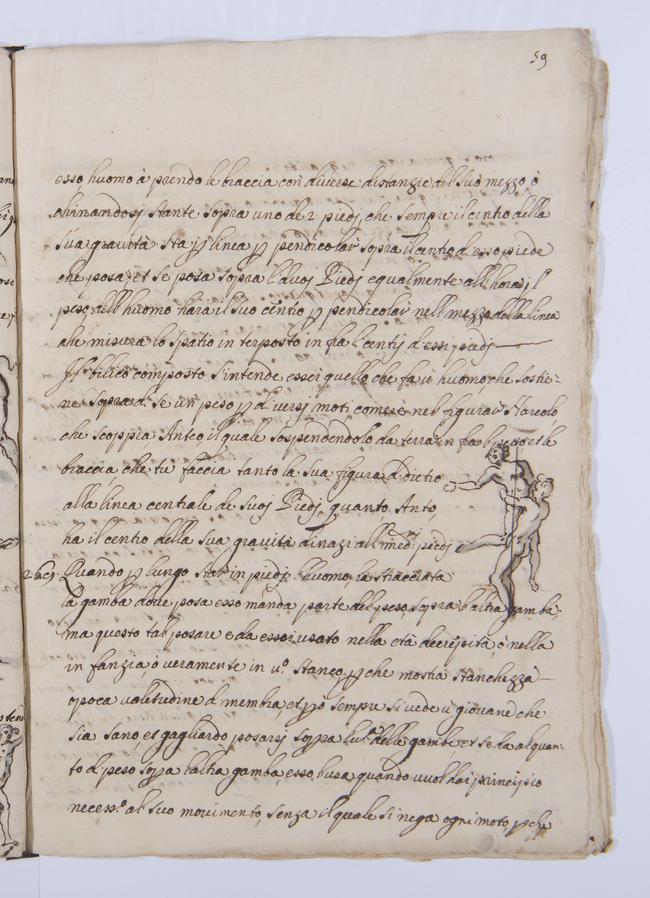 59
esso huomo aprendo le braccia con diverse distanzie del suo mezzo, ò
chinandosj stante sopra uno de 2 piedj che sempre il centro della
sua gravità sta p linea p pendicolar sopra il centro d'esso piede
che posa, et se posa sopra l duoj Piedj equalmente all'hora il
peso dell'huomo harà il suo centro p pendicolar nell mezzo della linea
che misura lo spatio in terposto in fra l centrj d'essi piedj
Il bilico composto s'intende esser quello che fa un huomo, che sostie-
ne sopra di se un peso p diversj moti come è nel figurar Hercole
che scoppia Anteo, il quale sospendendolo da terra in fra l petto et le
braccia che tu faccia tanto la sua figura di dietro
alla linea centrale de suoj Piedj, quanto Anto
ha il centro della sua gravità dinazi alli med.mi piedj
Quando p lungo star in piedj l'huomo ha stracciata
la gamba dove posa esso manda parte del peso sopra l'altra gamba,
ma questo tal posare è da esser usato nella età decrepita, ò nella
in fanzia, ò veramente in u.o stanco, p che mostra stanchezza
o poca valitudine di membra, et p o sempre si vede u giovane che
sia sano, et gagliardo posarsj sopra l'una delle gambe et se da alquan-
to di peso sopra l'altra gamba, esso l'usa quando vuol dar principio
necess.o al suo movimento, senza il quale si nega ogni moto, p che